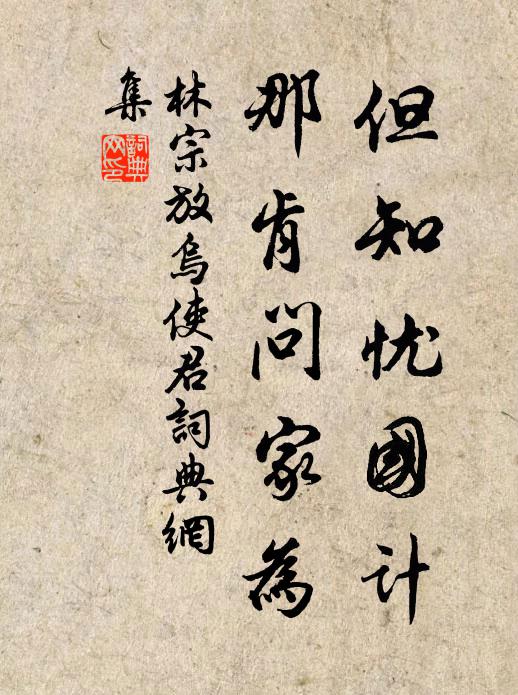 但知忧國计
那肯问家為
林宗放烏使君詞典網
集
詞典
网印